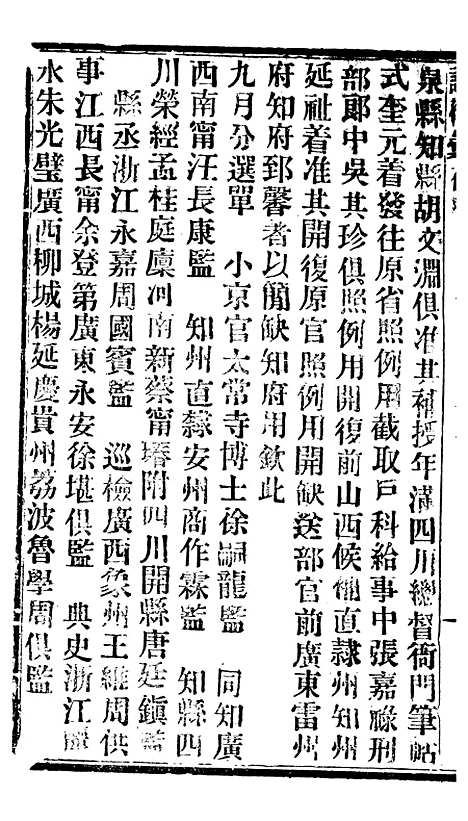 泉縣知縣胡文淵俱准其補授年滿四川總督衙門筆帖
式奎元着發往原省照例用截取戶科給事中張嘉祿刑
部郎中吳其珍俱照例用開復前山西候補直隸州知州
延祉着准其開復原官照例用開缺送部官前廣東雷州
府知府郅馨着以簡缺知府用欽此
九月分選單　小京官太常寺博士徐嗣龍監　同知廣
西南甯汪長康監　知州直隸安州商作霖監　知縣四
川榮經孟桂庭廩河南新蔡甯附四川開縣唐廷鎮監
縣丞浙江永嘉周國賓監　巡檢廣西象州王維周供
事江西長甯余登第廣東永安徐堪俱監　典史浙江
水朱光璧廣西柳城楊延慶貴州荔波魯學周俱監